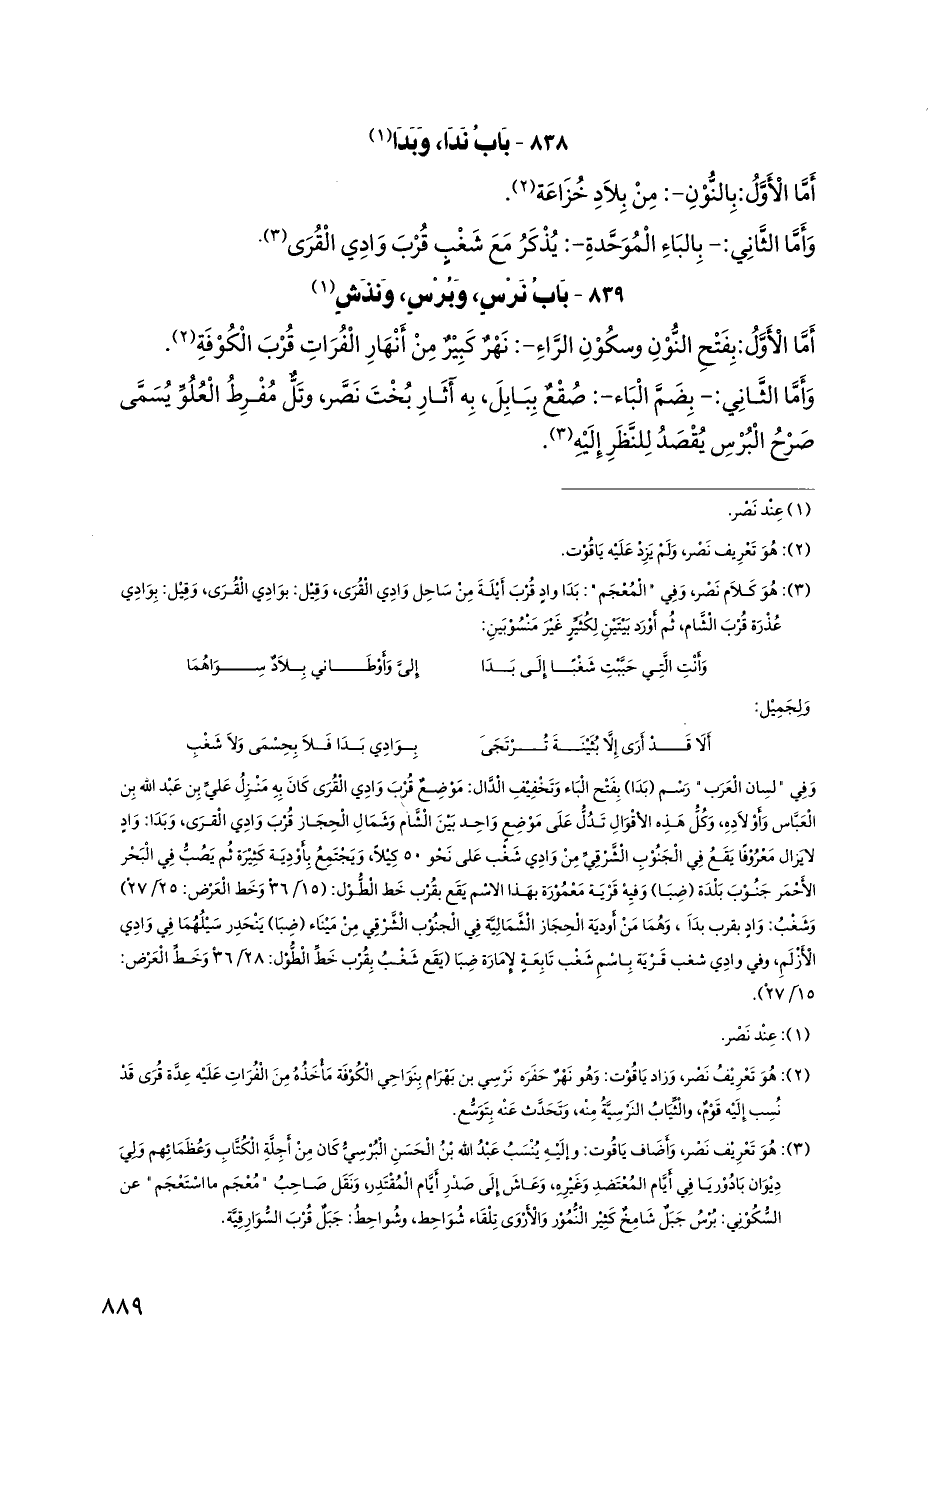 ٨٣٨ - بَابُ نَدَا، وَبَدَا(١)
أَمَّا الْأَوَّلُ:بِالنُّوْنِ-: مِنْ بِلاَدِ خُزَاعَة(٢).
وَأَمَّا الثَّانِي:- بِالبَاءِ الْمُوَحَّدةِ-: يُذْكَرُ مَعَ شَغْبٍ قُرْبَ وَادِي الْقُرَى(٣).
٨٣٩ - بَابُ نَرْسٍ، وَبُرْسٍ، وَنَدَشٍ(١)
أَمَّا الْأَوَّلُ:بِفَتْحِ النُّوْنِ وسكُوْنِ الرَّاءِ-: نَهْرٌ كَبِيْرٌ مِنْ أَنْهَارِ الْفُرَاتِ قُرْبَ الْكُوْفَةِ(٢).
وَأَمَّا الثَّانِي:- بِضَمِّ الْبَاء-: صُقْعٌ بِبَابِلَ، بِه أَثَارِ بُخْتَ نَصَّر، وتَلٌّ مُفْرِطُ الْعُلُوِّ يُسَمَّى
صَرْحُ الْبُرْسِ يُقْصَدُ لِلنَّظَرِ إِلَيْهِ(٣).
(١) عِنْد نَصْر.
(٢): هُوَ تَعْرِيف نَصْر، وَلَمْ يَزِدْ عَلَيْه يَاقُوْت.
(٣): هُوَ كَلَام نَصْر، وَفِي "الْمُعْجَم": بَدَا وادٍ قُرْبَ أَيْلَةَ مِنْ سَاحِل وَادِي الْقُرَى، وَقِيْل: بوَادِي الْقُرَى، وَقِيْل: بِوَادِي
عُذْرَة قُرْبَ الشَّام، ثُم أَوْرَد بَيْتَيْنِ لِكُثَيِّرٍ غَيْرَ مَنْسُوْبَيْنِ:
وَأَنْتِ الَّتِي حَبَّبْتِ شَغْبًا إِلَى بَدَا إِلىَّ وَأَوْطَانِي بِلاَدٌ سِوَاهُمَا
وَلِجَمِيْل:
أَلَا قَدْ أَرَى إِلَّا بُثَيْنَةَ تُرْتَجَىَ بِوَادِي بَدَا فَلاَ بِحِسْمَى وَلاَ شَغْبِ
وَفِي "لسان الْعَرَب" رَسْم (بَدَا) بِفَتْح الْبَاء وَتَخْفِيْف الدَّال: مَوْضِعٌ قُرْبَ وَادِي الْقُرَى كَانَ بِهِ مَنْزِل عَليِّ بن عَبْد الله بن
الْعَبَّاس وَأَوْلاَدِهِ، وَكُلُّ هَذِه الأَقْوَال تَدُلُّ عَلَى مَوْضِعٍ وَاحِد بَيْنَ الشَّام وشَمَال الْحِجَاز قُرْبَ وَادِي القرَى، وَبَدَا: وَادٍ
لايَزال مَعْرُوْفًا يَقَعُ فِي الْجَنُوْبِ الشَّرْقِيِّ مِنْ وَادِي شَغْب عَلَى نَحْو ٥٠ كِيْلاً، وَيَجْتَمِعُ بِأَوْدِيَة كَثِيْرَة ثُم يَصُبُّ فِي الْبَحْر
الأَحْمَر جَنُوْبَ بَلْدَة (ضِبَا) وَفِيهْ قَرْيَة مَعْمُوْرَة بِهَذا الاسْم يَقَع بقُرْب خط الطُّول: (٣٦/١٥ وَخَط الْعَرْض: ٢٧/٢٥)
وَشَغْبُ: وَادٍ بقرب بدَا ، وَهُمَا مَنْ أودية الْحِجَاز الشَّمَالِيَّة فِي الْجَنُوْب الشَّرْقِي مِنْ مَيْنَاء (ضِبَا) يَنْحَدِر سَيْلُهُمَا فِي وَادِي
الْأَزْلَم، وفي وادي شغب قَرْيَة بِاسْمِ شَغْب تابَعَةٍ لإِمَارَة ضِبَا (يَقَع شَغْبُ بِقُرْب خَطِّ الْطُوْل: ٣٦/٢٨ وَخَطِّ الْعَرْض:
٢٧/١٥).
(١): عِنْد نَصْر.
(٢): هُوَ تَعْرِيْفُ نَصْر، وَزَاد يَاقُوْت: وَهُو نَهْرٌ حَفَرَه نَرْسِي بن بَهْرَام بِنَوَاحِي الْكُوْفَة مَأْخَذُهُ مِنَ الْفُرَاتِ عَلَيْه عِدَّة قُرَى قَدْ
نُسِب إِلَيْه قَوْمٌ، والثِّيَابُ النَّرْسِيَّةُ مِنْه، وَتَحَدَّث عَنْه بِتَوَسُّعٍ.
(٣): هُوَ تَعْرِيْف نَصْر، وَأَضَاف يَاقُوت: وإِلَيْهِ يُنْسَبُ عَبْدُ الله بْنُ الْحَسَنِ الْبُرْسِيُّ كَان مِنْ أَجِلَّةِ الْكُتَّابِ وَعُظَمَائِهِم وَلِيَ
دِيْوَان بَادُوْرِيَا فِي أَيَّام المُعْتَضِدِ وَغَيْرِهِ، وَعَاش إِلَى صَدْر أَيَّام الْمُقْتَدِر، وَنَقَل صَاحِبُ "مُعْجَم مااسْتَعْجَم" عن
السَّكُوْنِي: بُرْسُ جَبَلٌ شَامِخٌ كَثِيْر النُّمُوْر وَالْأَرْوَى تِلْقَاء شُوَاحِط، وشُواحِطُ: جَبَلٌ قُرْبَ السُّوَارِقِيَّة.
٨٨٩